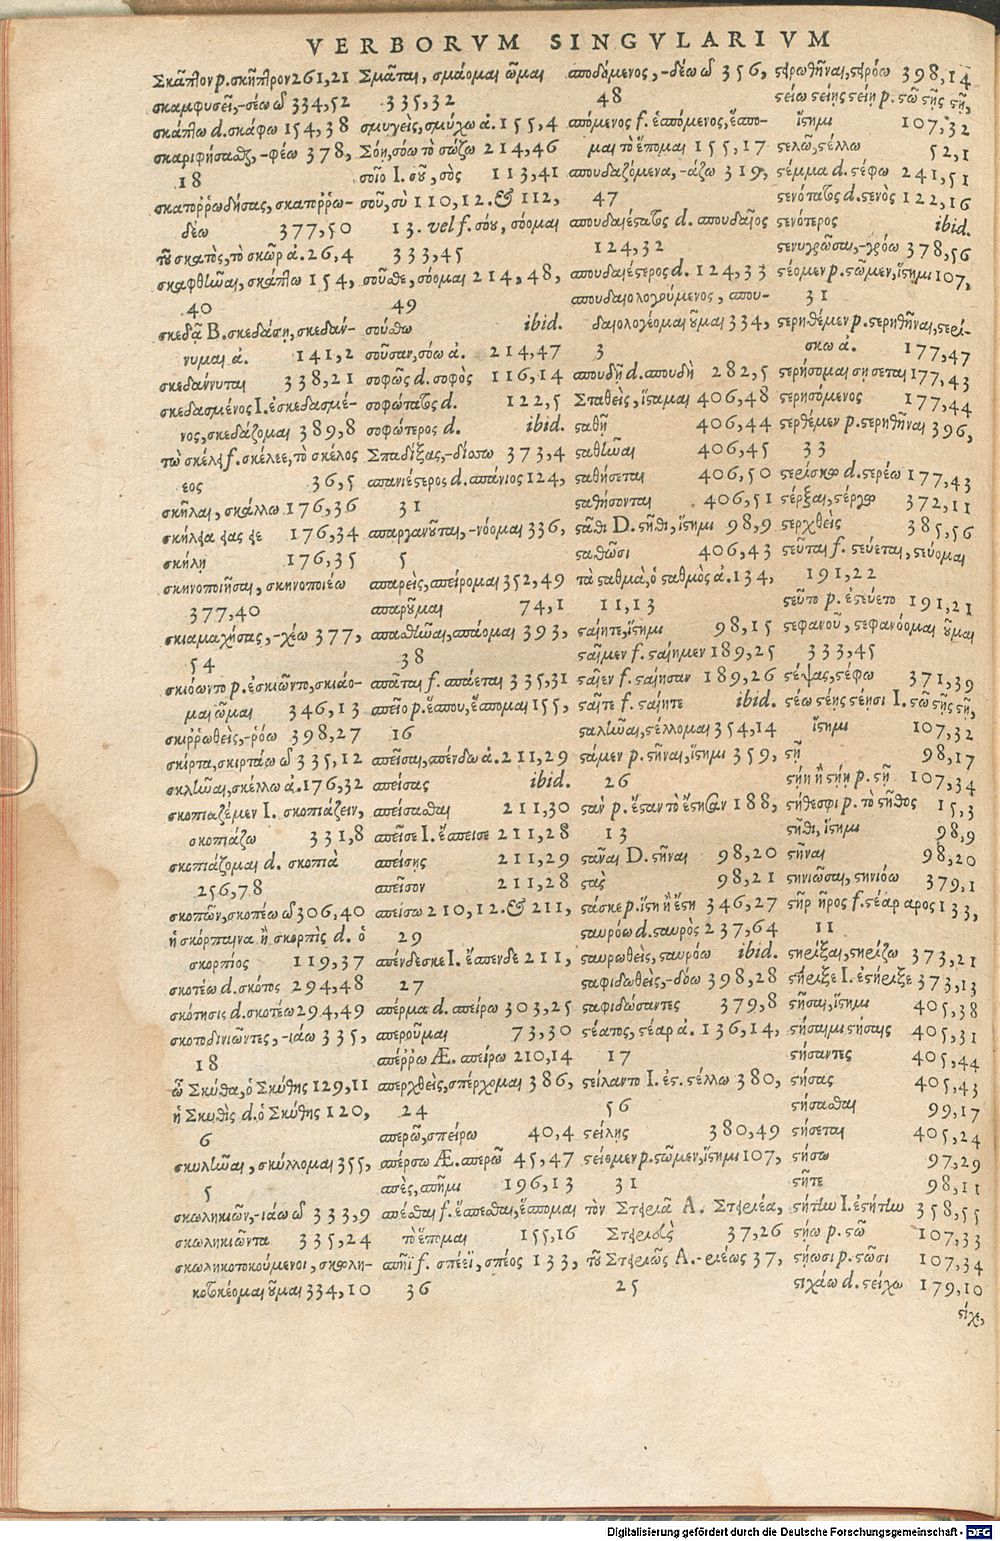 VERBORVM SINGVLARIVM
Σκᾶπτον p. σκῆπτρον 261,21
σκαμφυσεῖ, -σέω ῶ 334,52
σκάπτω d. σκάφω 154,38
σκαριφήσασθ, -φέω 378,
18
σκατοῤῥοδήσας, σκατοῤῥω-
δέω 377,50
τοῦ σκατὸς, τὸ σκῶρ ἀ. 26,4
σκαφθῶσαι, σκάπτω 154,
40
σκεδᾷ B. σκεδάσῃ, σκεδάν-
νυμαι ἀ. 141,2
σκεδάννυται 338,21
σκεδασμένος I. ἐσκεδασμέ-
νος, σκεδάζομαι 389,8
τὼ σκέλη f. σκέλεε, τὸ σκέλος
εος 36,5
σκῆλαι, σκάλλω 176,36
σκήλῃα ῃας ῃε 176,34
σκήλῃ 176,35
σκηνοποιῆσαι, σκηνοποιέω
377,40
σκιαμαχήσας, -χέω 377,
54
σκιόωντο p. ἐσκιῶντο, σκιάο-
μαι ῶμαι 346,13
σκιῤῥωθεὶς, -ῤόω 398,27
σκίρτα, σκιρτάω ῶ 335,12
σκλῶαι, σκέλλω ἀ. 176,32
σκοπιαζέμεν I. σκοπιάζειν,
σκοπιάζω 331,8
σκοπιάζομαι d. σκοπιὰ
256,78
σκοπῶν, σκοπέω ῶ 306,40
ἡ σκόρπαινα ἢ σκορπὶς d. ὁ
σκορπίος 119,37
σκοτέω d. σκότος 294,48
σκότησις d. σκοτέω 294,49
σκοτοδινιῶντες, -ιάω 335,
18
ὦ Σκύθα, ὁ Σκύθης 129,11
ἡ Σκυθὶς d. ὁ Σκύθης 120,
6
σκυλῶαι, σκύλλομαι 355,
5
σκωληκιῶν, -ιάω ῶ 333,9
σκωληκιῶντα 335,24
σκωληκοτοκούμενοι, σκωλη-
κοτοκέομαι οῦμαι 334,10
Σμᾶται, σμάομαι ῶμαι
335,32
σμυγεὶς, σμύχω ἀ. 155,4
Σόῃ, σόω τὸ σώζω 214,46
σοῖο I. σοῦ, σὸς 113,41
σοῦ, σὺ 110,12. & 112,
13. vel f. σόου, σόομαι
333,45
σοῦσθε, σόομαι 214,48,
49
σούσθω ibid.
σοῦσαν, σόω ἀ. 214,47
σοφῶς d. σοφὸς 116,14
σοφώτατος d. 122,5
σοφώτερος d. ibid.
Σπαδίξας, -δίσσω 373,4
σπανιέστερος d. σπάνιος 124,
31
σπαργανοῦται, -νόομαι 336,
5
σπαρεὶς, σπείρομαι 352,49
σπαροῦμαι 74,1
σπασθῶαι, σπάομαι 393,
38
σπᾶται f. σπάεται 335,31
σπεῖο p. ἕσπου, ἕσπομαι 155,
16
σπεῖσαι, σπένδω ἀ. 211,29
σπείσας ibid.
σπείσασθαι 211,30
σπεῖσε I. ἔσπεισε 211,28
σπείσῃς 211,29
σπεῖσον 211,28
σπείσω 210,12. & 211,
29
σπένδεσκε I. ἔσπενδε 211,
27
σπέρμα d. σπείρω 303,25
σπεροῦμαι 73,30
σπέῤῥω Æ. σπείρω 210,14
σπερχθεὶς, σπέρχομαι 386,
24
σπερῶ, σπείρω 40,4
σπέρσω Æ. σπερῶ 45,47
σπὲς, σπῆμι 196,13
σπέσθαι f. ἕσπεσθαι, ἕσπομαι
τὸ ἕπομαι 155,16
σπῆϊ f. σπέεϊ, σπέος 133,
36
σποδούμενος, -δέω ῶ 356,
48
σπόμενος f. ἑσπόμενος, ἕσπο-
μαι τὸ ἕπομαι 155,17
σπουδαζόμενα, -άζω 319,
47
σπουδαιέστατος d. σπουδαῖος
124,32
σπουδαιέστερος d. 124,33
σπουδαιολογούμενος, σπου-
δαιολογέομαι οῦμαι 334,
3
σπουδῇ d. σπουδὴ 282,5
Σταθεὶς, ἵσταμαι 406,48
σταθῇ 406,44
σταθῶαι 406,45
σταθήσεται 406,50
σταθήσονται 406,51
στᾶθι D. στῆθι, ἵστημι 98,9
σταθῶσι 406,43
τὰ σταθμὰ, ὁ σταθμὸς ἀ. 134,
11,13
σταίητε, ἵστημι 98,15
σταῖμεν f. σταίημεν 189,25
σταῖεν f. σταίησαν 189,26
σταῖτε f. σταίητε ibid.
σταλῶαι, στέλλομαι 354,14
στάμεν p. στῆναι, ἵστημι 359,
26
σταν p. ἔσταν τὸ ἔστησαν 188,
13
στᾶναι D. στῆναι 98,20
στὰς 98,21
στάσκε p. ἵστη ἢ ἔστη 346,27
σταυρόω d. σταυρὸς 237,64
σταυρωθεὶς, σταυρόω ibid.
σταφιδωθεὶς, -δόω 398,28
σταφιδώσαντες 379,8
στέατος, στέαρ ἀ. 136,14,
17
στείλαντο I. ἐς. στέλλω 380,
56
στείλῃς 380,49
στείομεν p. στῶμεν, ἵστημι 107,
31
τὸν Στειριᾶ A. Στειριέα,
Στειριεὺς 37,26
τοῦ Στειριῶς A. -ριέως 37,
25
στειρωθῆναι, στειρόω 398,14
στείω στείῃς στείῃ p. στῶ στῇς στῇ,
ἵστημι 107,32
στελῶ, στέλλω 52,1
στέμμα d. στέφω 241,51
στενότατος d. στενὸς 122,16
στενότερος ibid.
στενυγρῶσαι, -γρόω 378,56
στέομεν p. στῶμεν, ἵστημι 107,
31
στερηθέμεν p. στερηθῆναι, στερί-
σκω ἀ. 177,47
στερήσομαι σῃ σεται 177,43
στερησόμενος 177,44
στερθέμεν p. στερηθῆναι 396,
33
στερίσκω d. στερέω 177,43
στέρξαι, στέργω 372,11
στερχθεὶς 385,56
στεῦται f. στεύεται, στεύομαι
191,22
στεῦτο p. ἐστεύετο 191,21
στεφανοῦ, στεφανόομαι οῦμαι
333,45
στέψας, στέφω 371,39
στέω στέῃς στέῃσι I. στῶ στῇς στῇ,
ἵστημι 107,32
στῇ 98,17
στήῃ ἢ στήῃ p. στῇ 107,34
στήθεσφι p. τὸ στῆθος 15,3
στῆθι, ἵστημι 98,9
στῆναι 98,20
στηνιῶσαι, στηνιόω 379,1
στῆρ στῆρος f. στέαρ αρος 133,
11
στηρίξαι, στηρίζω 373,21
στήριξε I. ἐστήριξε 373,13
στῆσαι, ἵστημι 405,38
στήσαιμι στήσαις 405,31
στήσαντες 405,44
στήσας 405,43
στήσασθαι 99,17
στήσεται 405,24
στήσω 97,29
στῆτε 98,11
στήτω I. ἐστήτω 358,55
στήω p. στῶ 107,33
στήωσι p. στῶσι 107,34
στιχάω d. στείχω 179,10
στίχε,
Digitalisierung gefördert durch die Deutsche Forschungsgemeinschaft - DFG